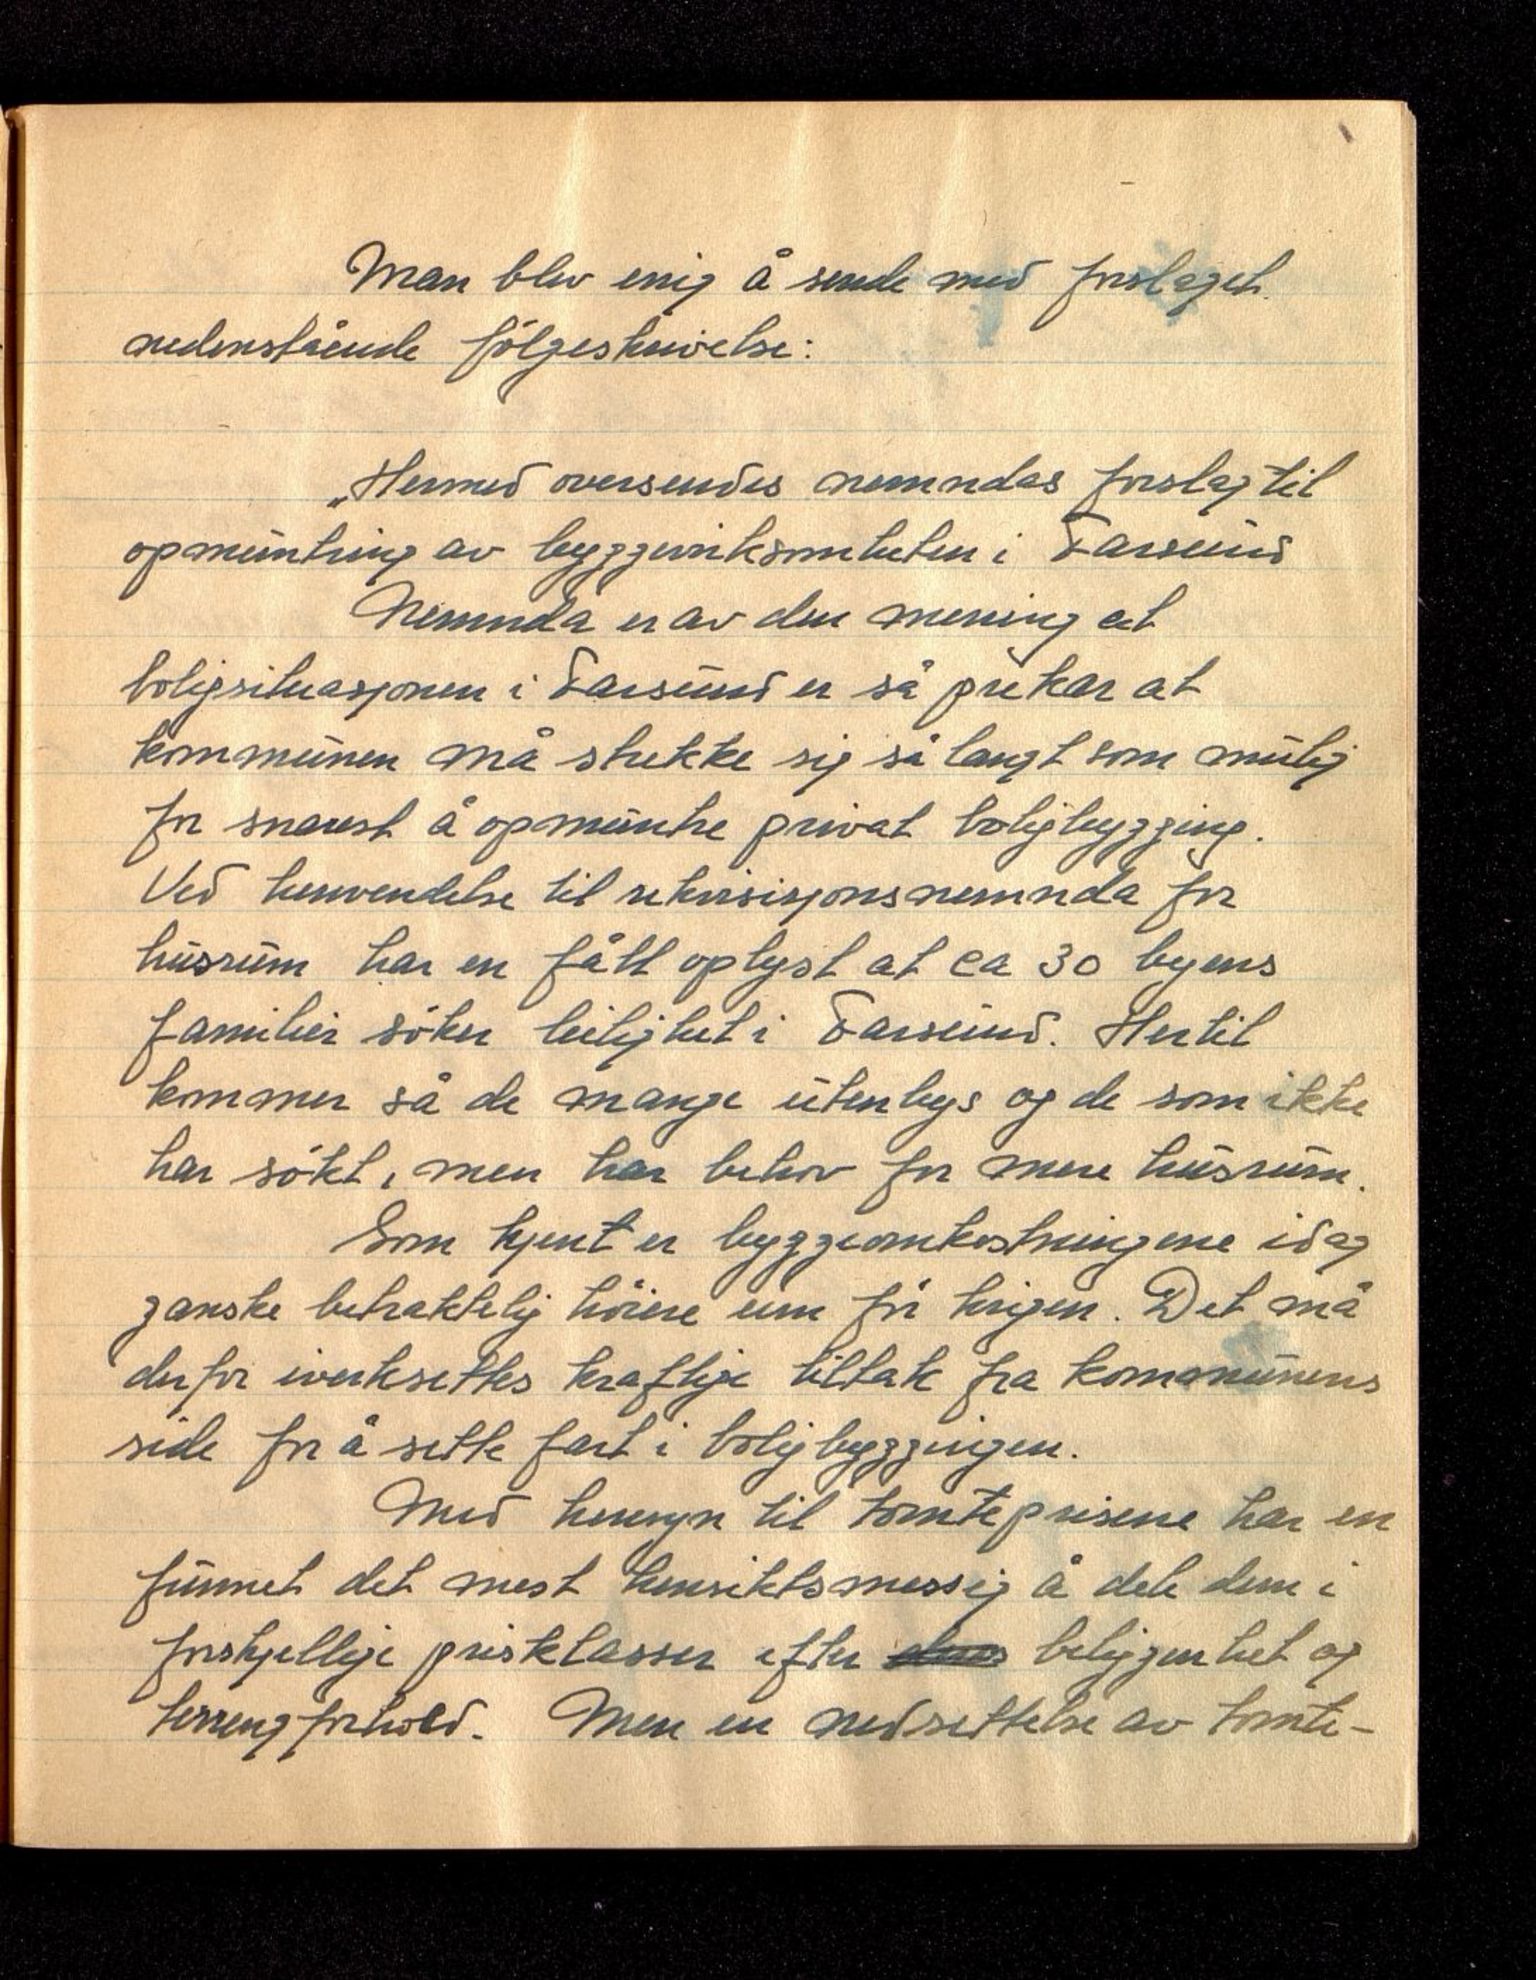 Man blev enig å sende med forslaget
nedenstående følgeskrivelse:
„Hermed oversendes nemndas forslag til
opmuntring av byggevirksomheten i Farsund
Nemnda er av den mening at
boligsituasjonen i Farsund er så prekær at
kommunen må strekke sig så langt som mulig
for snarest å opmuntre privat boligbygging.
Ved henvendelse til rekvisisjonsnemnda for
husrum har en fått oplyst at ca 30 byens
familier søker leilighet i Farsund. Hertil
kommer så de mange utenbys og de som ikke
har søkt, men har behov for mere husrum.
Som kjent er byggeomkostningene idag
ganske betraktelig høiere enn før krigen. Det må
derfor iverksettes kraftige tiltak fra kommunens
side for å sette fart i boligbyggingen.
Med hensyn til tomteprisene har en
funnet det mest hensiktsmessig å dele dem i
forskjellige prisklasser efter beliggenhet og
terrengforhold. Men en nedsettelse av tomte-